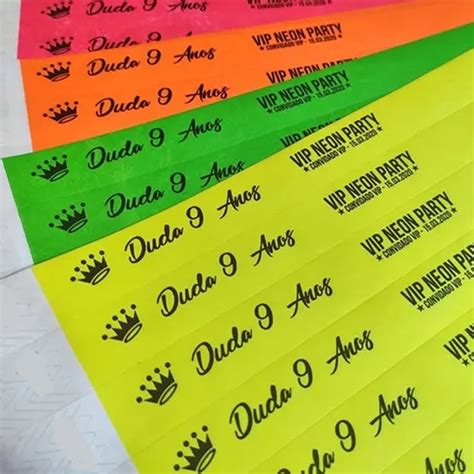 Duda 9 Anos
Duda 9 Anos
VIP NEON PARTY
★ CONVIDADO VIP - 15.03.2020 ★
Duda 9 Anos
Duda 9 Anos
VIP NEON PARTY
★ CONVIDADO VIP - 15.03.2020 ★
Duda 9 Anos
Duda 9 Anos
VIP NEON PARTY
★ CONVIDADO VIP - 15.03.2020 ★
Duda 9 Anos
VIP NEON PARTY
★ CONVIDADO VIP - 15.03.2020 ★
Duda 9 Anos
VIP NEON PARTY
★ CONVIDADO VIP - 15.03.2020 ★
Duda 9 Anos
VIP NEON
★ CONVIDADO
Duda 9 Anos
VIP